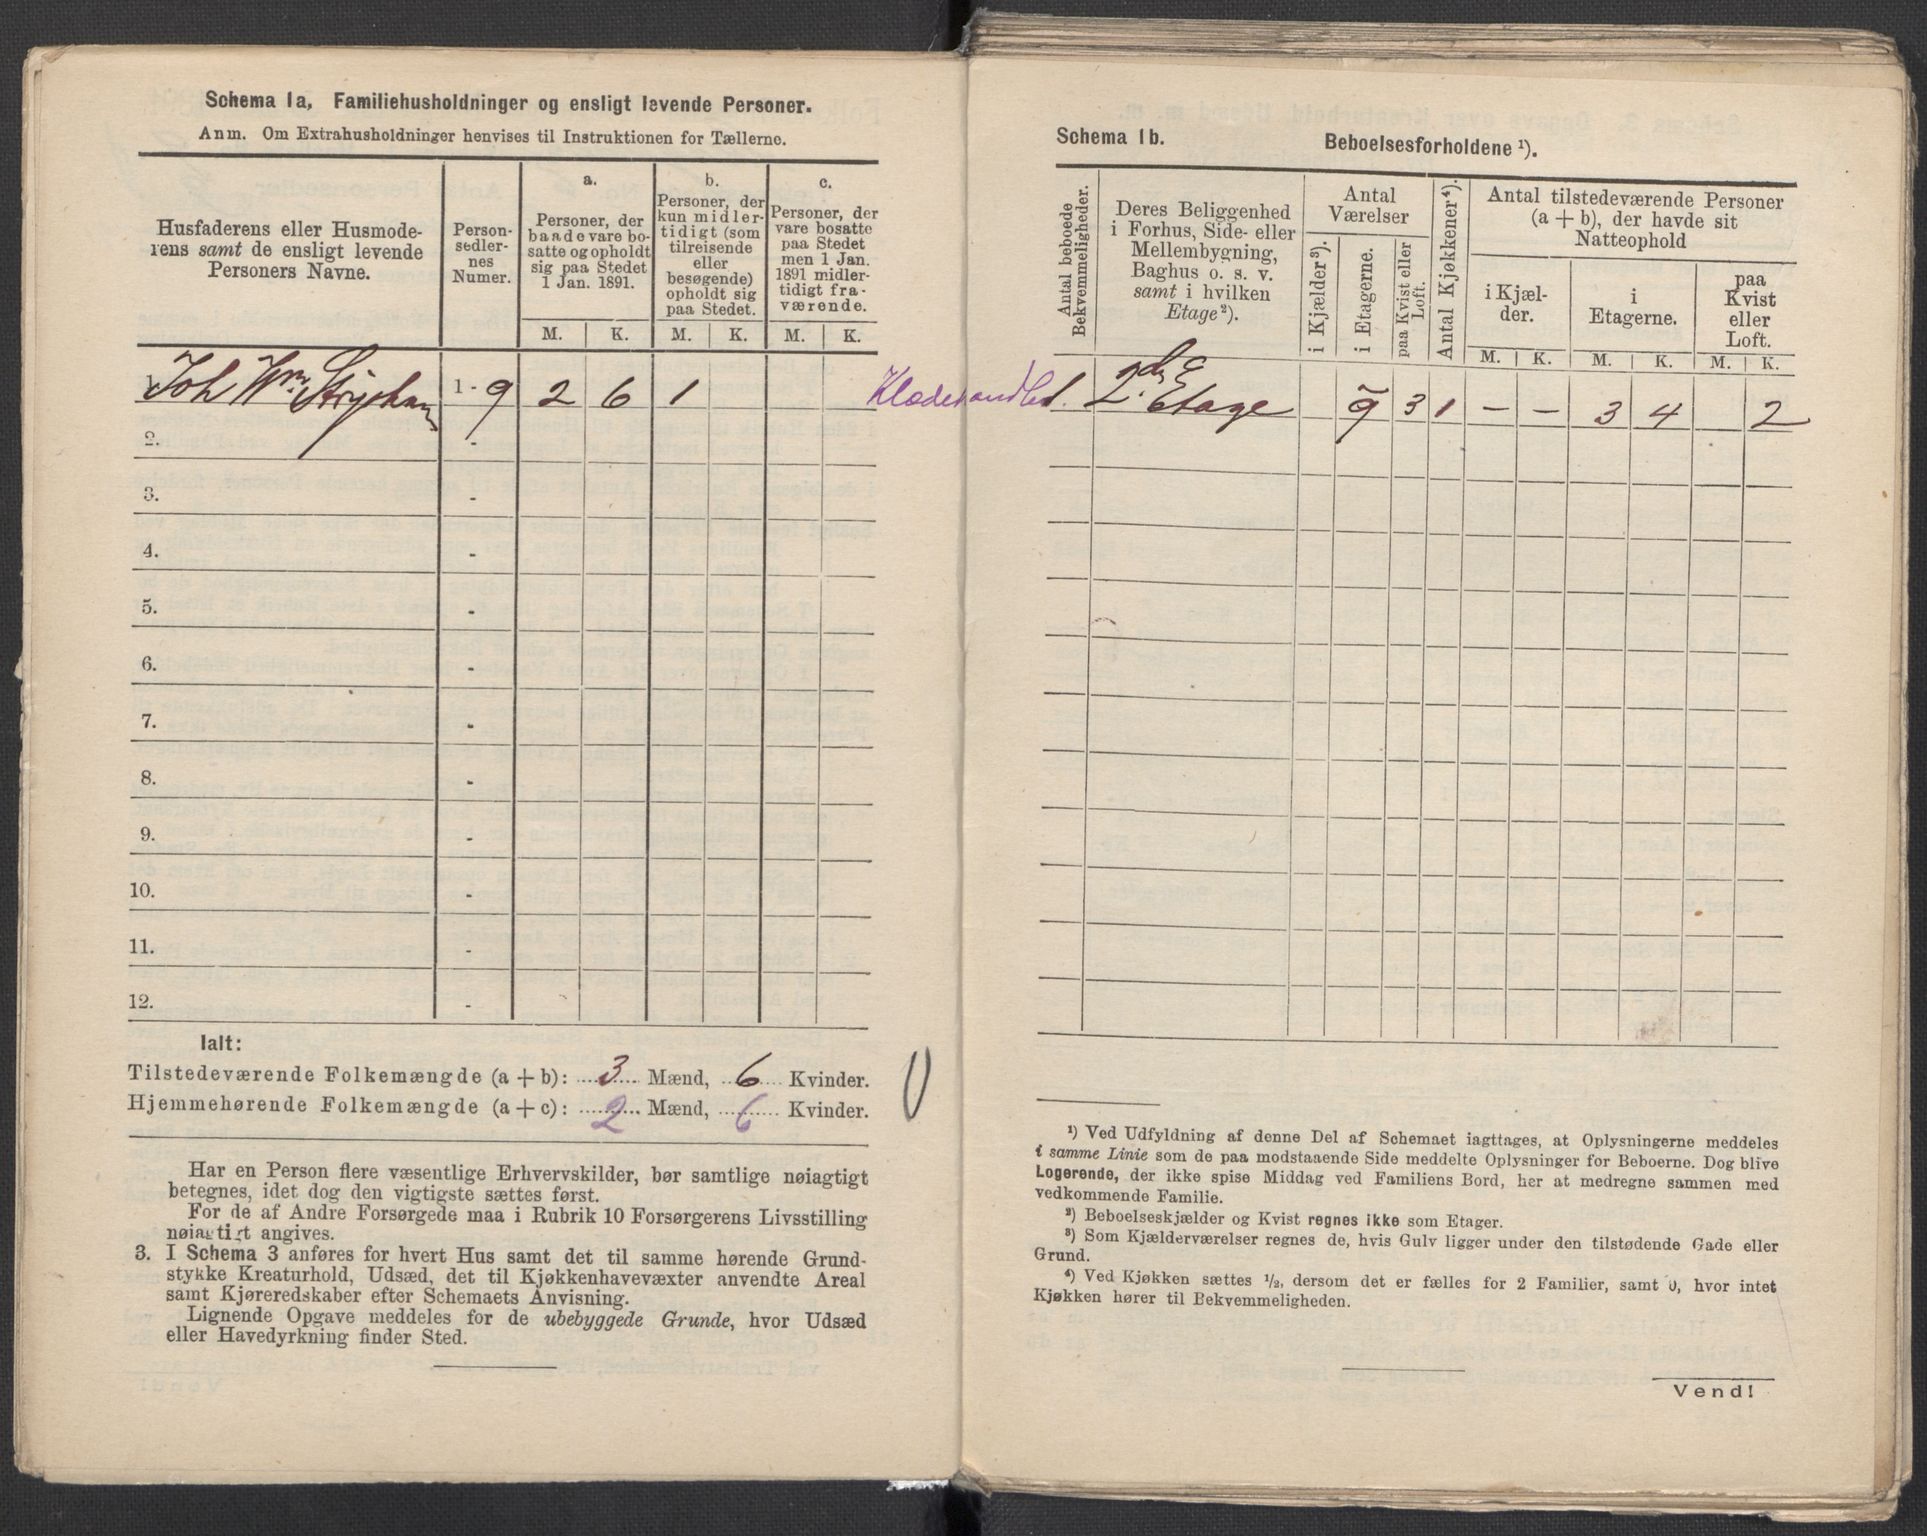 Schema 1a, Familiehusholdninger og ensligt levende Personer.
Anm. Om Extrahusholdninger henvises til Instruktionen for Tællerne.
Husfaderens eller Husmode-
rens samt de ensligt levende
Personers Navne.
Person-
sedler-
nes
Numer.
a.
Personer, der
baade vare bo-
satte og opholdt
sig paa Stedet
1 Jan. 1891.
b.
Personer, der
kun midler-
tidigt (som
tilreisende
eller
besøgende)
opholdt sig
paa Stedet.
c.
Personer, der
vare bosatte
paa Stedet
men 1 Jan.
1891 midler-
tidigt fra-
værende.
M. K. M. K. M. K.
1. Joh Wm 1 - 9 2 6 1
2. -
3. -
4. -
5. -
6. -
7. -
8. -
9. -
10. -
11. -
12. -
Ialt:
Tilstedeværende Folkemængde (a + b): 3 Mænd, 6 Kvinder.
Hjemmehørende Folkemængde (a + c): 2 Mænd, 6 Kvinder.
Har en Person flere væsentlige Erhvervskilder, bør samtlige nøiagtigt
betegnes, idet dog den vigtigste sættes først.
For de af Andre Forsørgede maa i Rubrik 10 Forsørgerens Livsstilling
nøiagtigt angives.
3. I Schema 3 anføres for hvert Hus samt det til samme hørende Grund-
stykke Kreaturhold, Udsæd, det til Kjøkkenhavevæxter anvendte Areal
samt Kjøreredskaber efter Schemaets Anvisning.
Lignende Opgave meddeles for de ubebyggede Grunde, hvor Udsæd
eller Havedyrkning finder Sted.
Schema 1b. Beboelsesforholdene ¹).
Antal beboede
Bekvemmeligheder.
Deres Beliggenhed
i Forhus, Side- eller
Mellembygning,
Baghus o. s. v.
samt i hvilken
Etage²).
Antal
Værelser
i Kjælder³).
i Etagerne.
paa Kvist eller
Loft.
Antal Kjøkkener⁴).
Antal tilstedeværende Personer
(a + b), der havde sit
Natteophold
i Kjæl-
der.
i
Etagerne.
paa
Kvist
eller
Loft.
M. K. M. K. M. K.
1. 2den Etage 9 3 1 – – 3 4 2
¹) Ved Udfyldning af denne Del af Schemaet iagttages, at Oplysningerne meddeles
i samme Linie som de paa modstaaende Side meddelte Oplysninger for Beboerne. Dog blive
Logerende, der ikke spise Middag ved Familiens Bord, her at medregne sammen med
vedkommende Familie.
²) Beboelseskjælder og Kvist regnes ikke som Etager.
³) Som Kjælderværelser regnes de, hvis Gulv ligger under den tilstødende Gade eller
Grund.
⁴) Ved Kjøkken sættes ½, dersom det er fælles for 2 Familier, samt 0, hvor intet
Kjøkken hører til Bekvemmeligheden.
Vend!